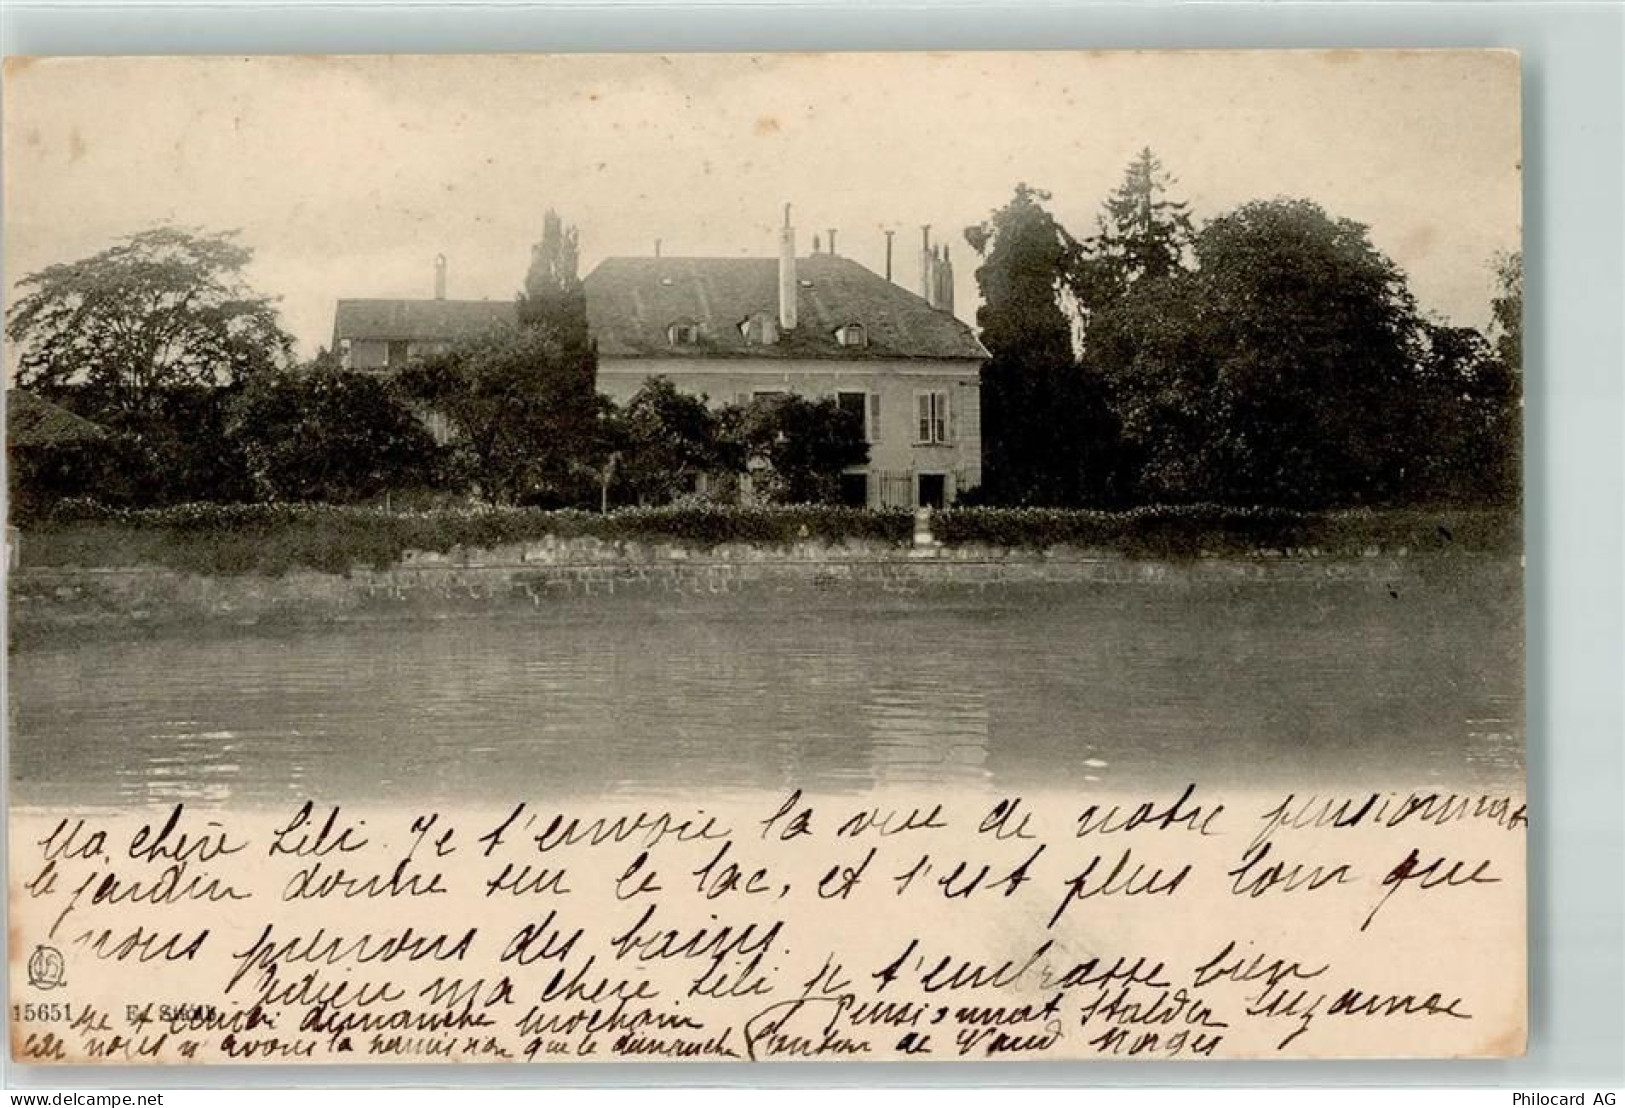 Ma chère Lili. Je t'envoie la vue de notre pensionnat
le jardin donne sur le lac, et s'est plus loin que
nous prenons des bains.
Adieu ma chère Lili je t'embrasse bien
Suzanne
15651
Je t'écrirai dimanche prochain
car nous n'avons la permission que le dimanche
Pensionnat Stalder
Canton de Vaud Morges
Philocard AG